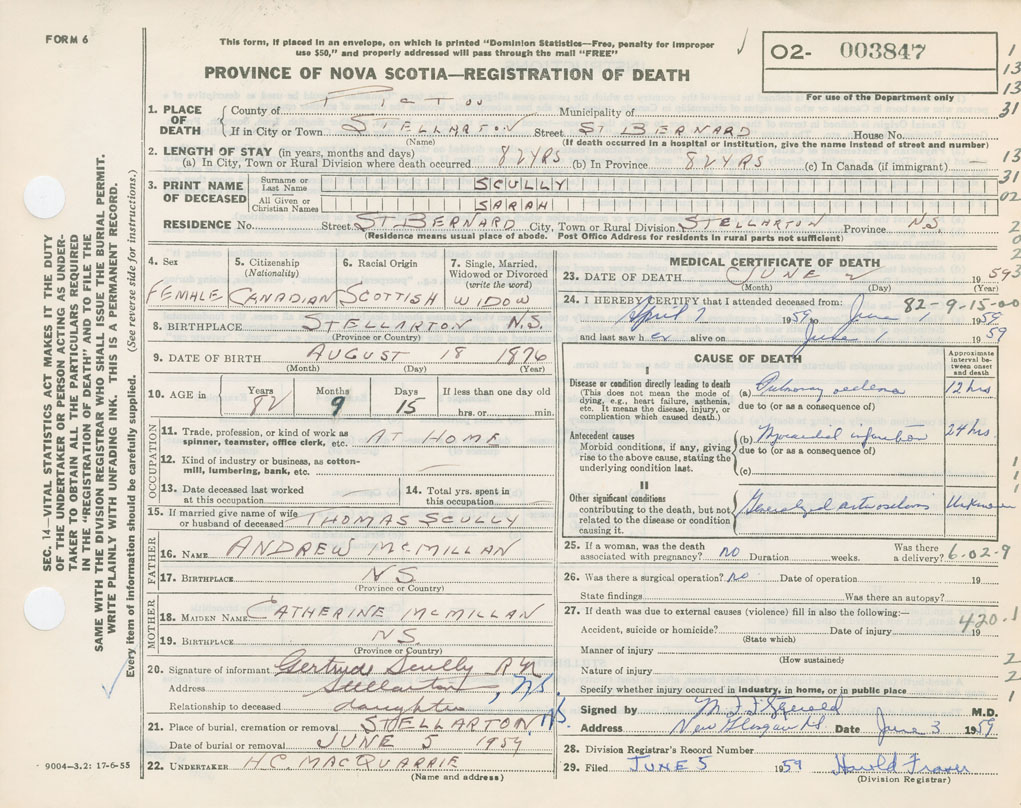 FORM 6
This form, if placed in an envelope, on which is printed "Dominion Statistics—Free, penalty for improper
use $50," and properly addressed will pass through the mail "FREE"
O2- 003847
For use of the Department only
PROVINCE OF NOVA SCOTIA—REGISTRATION OF DEATH
1. PLACE OF DEATH
County of Pictou Municipality of
If in City or Town STELLARTON Street ST BERNARD House No.
(Name) (If death occurred in a hospital or institution, give the name instead of street and number)
2. LENGTH OF STAY (in years, months and days)
(a) In City, Town or Rural Division where death occurred 82 YRS (b) In Province 82 YRS (c) In Canada (if immigrant)
3. PRINT NAME OF DECEASED
Surname or Last Name SCULLY
All Given or Christian Names SARAH
RESIDENCE No. Street ST BERNARD City, Town or Rural Division STELLARTON Province N.S.
(Residence means usual place of abode. Post Office Address for residents in rural parts not sufficient)
4. Sex
FEMALE
5. Citizenship
(Nationality)
CANADIAN
6. Racial Origin
SCOTTISH
7. Single, Married, Widowed or Divorced
(write the word)
WIDOW
8. BIRTHPLACE STELLARTON N.S.
(Province or Country)
9. DATE OF BIRTH AUGUST 18 1876
(Month) (Day) (Year)
10. AGE in
Years Months Days If less than one day old
82 9 15 hrs. or min.
OCCUPATION
11. Trade, profession, or kind of work as
spinner, teamster, office clerk, etc. AT HOME
12. Kind of industry or business, as cotton-
mill, lumbering, bank, etc.
13. Date deceased last worked
at this occupation
14. Total yrs. spent in
this occupation
15. If married give name of wife
or husband of deceased THOMAS SCULLY
FATHER
16. NAME ANDREW MCMILLAN
17. BIRTHPLACE N.S.
(Province or Country)
MOTHER
18. MAIDEN NAME CATHERINE MCMILLAN
19. BIRTHPLACE N.S.
(Province or Country)
20. Signature of informant Gertrude Scully R.N.
Address Stellarton, N.S.
Relationship to deceased daughter
21. Place of burial, cremation or removal STELLARTON N.S.
Date of burial or removal JUNE 5 1959
22. UNDERTAKER H.C. MACQUARRIE
(Name and address)
MEDICAL CERTIFICATE OF DEATH
23. DATE OF DEATH JUNE 2 1959
(Month) (Day) (Year)
24. I HEREBY CERTIFY that I attended deceased from: 82-9-15-00
April 7 1959 to June 1 1959
and last saw her alive on June 1 1959
CAUSE OF DEATH
Approximate interval between onset and death
I
Disease or condition directly leading to death
(This does not mean the mode of
dying, e.g., heart failure, asthenia,
etc. It means the disease, injury, or
complication which caused death.)
(a) Pulmonary oedema 12 hrs
due to (or as a consequence of)
Antecedent causes
Morbid conditions, if any, giving
rise to the above cause, stating the
underlying condition last.
(b) Myocardial infarction 24 hrs
due to (or as a consequence of)
(c)
II
Other significant conditions
contributing to the death, but not
related to the disease or condition
causing it.
Generalized arteriosclerosis Unknown
25. If a woman, was the death
associated with pregnancy? NO Duration weeks. Was there
a delivery? 6-02-9
26. Was there a surgical operation? No Date of operation 19
State findings Was there an autopsy?
27. If death was due to external causes (violence) fill in also the following:—
420-1
Accident, suicide or homicide? Date of injury 19
(State which)
Manner of injury
(How sustained)
Nature of injury
Specify whether injury occurred in industry, in home, or in public place
Signed by M J Fitzgerald M.D.
Address New Glasgow Date June 3 1959
28. Division Registrar's Record Number
29. Filed JUNE 5 1959 Harold Fraser
(Division Registrar)
SEC. 14—VITAL STATISTICS ACT MAKES IT THE DUTY
OF THE UNDERTAKER OR PERSON ACTING AS UNDER-
TAKER TO OBTAIN ALL THE PARTICULARS REQUIRED
IN THE "REGISTRATION OF DEATH" AND TO FILE THE
SAME WITH THE DIVISION REGISTRAR WHO SHALL ISSUE THE BURIAL PERMIT.
WRITE PLAINLY WITH UNFADING INK. THIS IS A PERMANENT RECORD.
Every item of information should be carefully supplied. (See reverse side for instructions.)
9004—3.2: 17-6-55
1
13
13
31
13
31
02
2
0
2
3
1
1
1
1
2
2
1